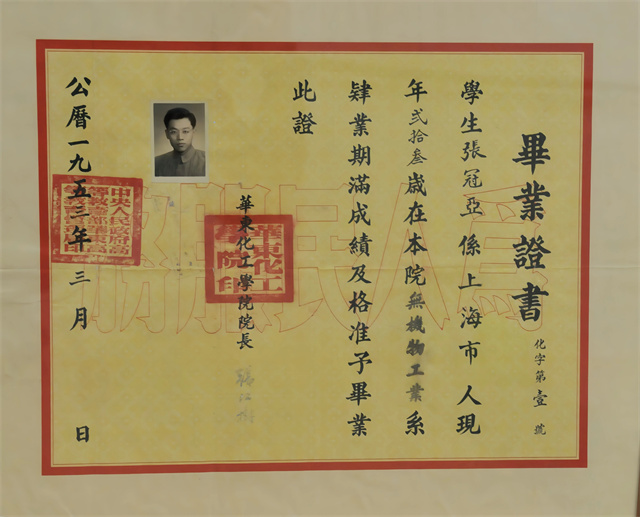 畢業證書
化字第壹號
學生張冠亞係上海市人現
年貳拾叁歲在本院無機物工業系
肄業期滿成績及格准予畢業
此證
華東化工學院院長 張江樹
華東化工學院印
公曆一九五三年三月 日
為人民服務